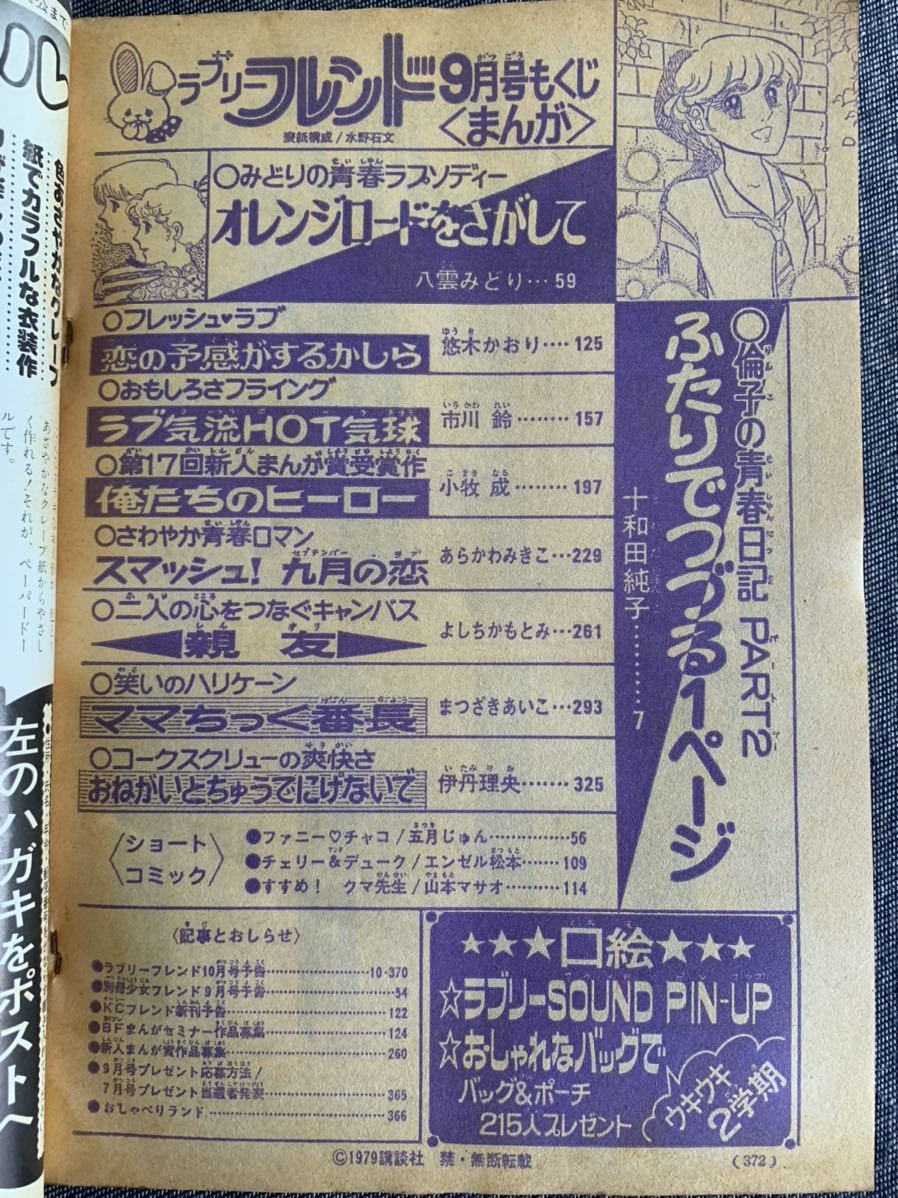 ラブリーフレンド9月号もくじ
〈まんが〉
表紙構成/水野石文
○倫子の青春日記 PART2
ふたりでつづる1ページ
十和田純子………7
○みどりの青春ラプソディー
オレンジロードをさがして
八雲みどり…59
○フレッシュ♥ラブ
恋の予感がするかしら
悠木かおり‥‥125
○おもしろさフライング
ラブ気流HOT気球
市川 鈴………157
○第17回新人まんが賞受賞作
俺たちのヒーロー
小牧 成………197
○さわやか青春ロマン
スマッシュ! 九月の恋
あらかわみきこ…229
○二人の心をつなぐキャンパス
親友
よしちかもとみ…261
○笑いのハリケーン
ママちっく番長
まつざきあいこ…293
○コークスクリューの爽快さ
おねがいとちゅうでにげないで
伊丹理央………325
〈ショートコミック〉
●ファニー♡チャコ/五月じゅん………56
●チェリー&デューク/エンゼル松本………109
●すすめ! クマ先生/山本マサオ………114
〈記事とおしらせ〉
●ラブリーフレンド10月号予告………10・370
●別冊少女フレンド9月号予告………54
●KCフレンド新刊予告………122
●BFまんがセミナー作品募集………124
●新人まんが賞作品募集………260
●9月号プレゼント応募方法/
7月号プレゼント当選者発表………365
●おしゃべりランド………366
★★★口絵★★★
☆ラブリーSOUND PIN-UP
☆おしゃれなバッグで
バッグ&ポーチ
215人プレゼント
ウキウキ
2学期
©1979講談社 禁・無断転載
(372)
紙でカラフルな衣装作
あざやかなクレープ紙からやさし
く作れる!それが、ペーパードー
ルです。
左のハガキをポストへ